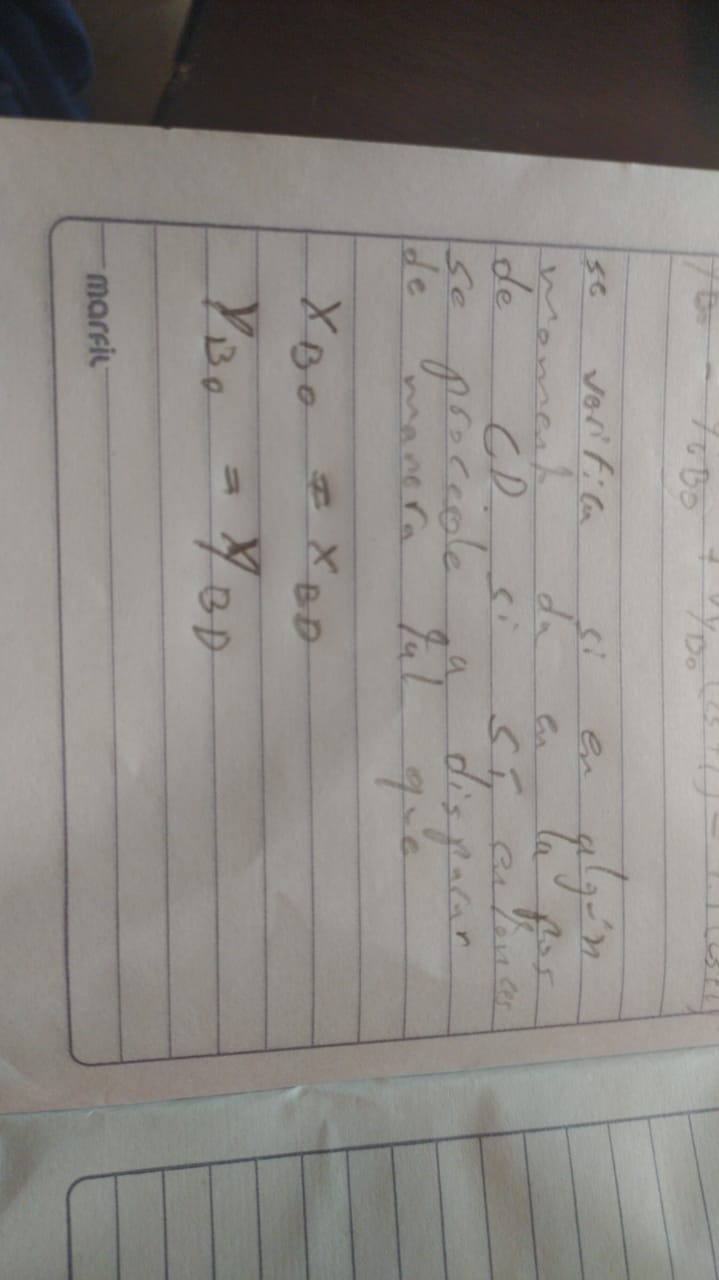 se verifica si en algún
moment da en la pos
de CD. si sí entonces
se procede a disparar
de manera tal que
X_Bo = X_BD
Y_Bo = Y_BD
marfil